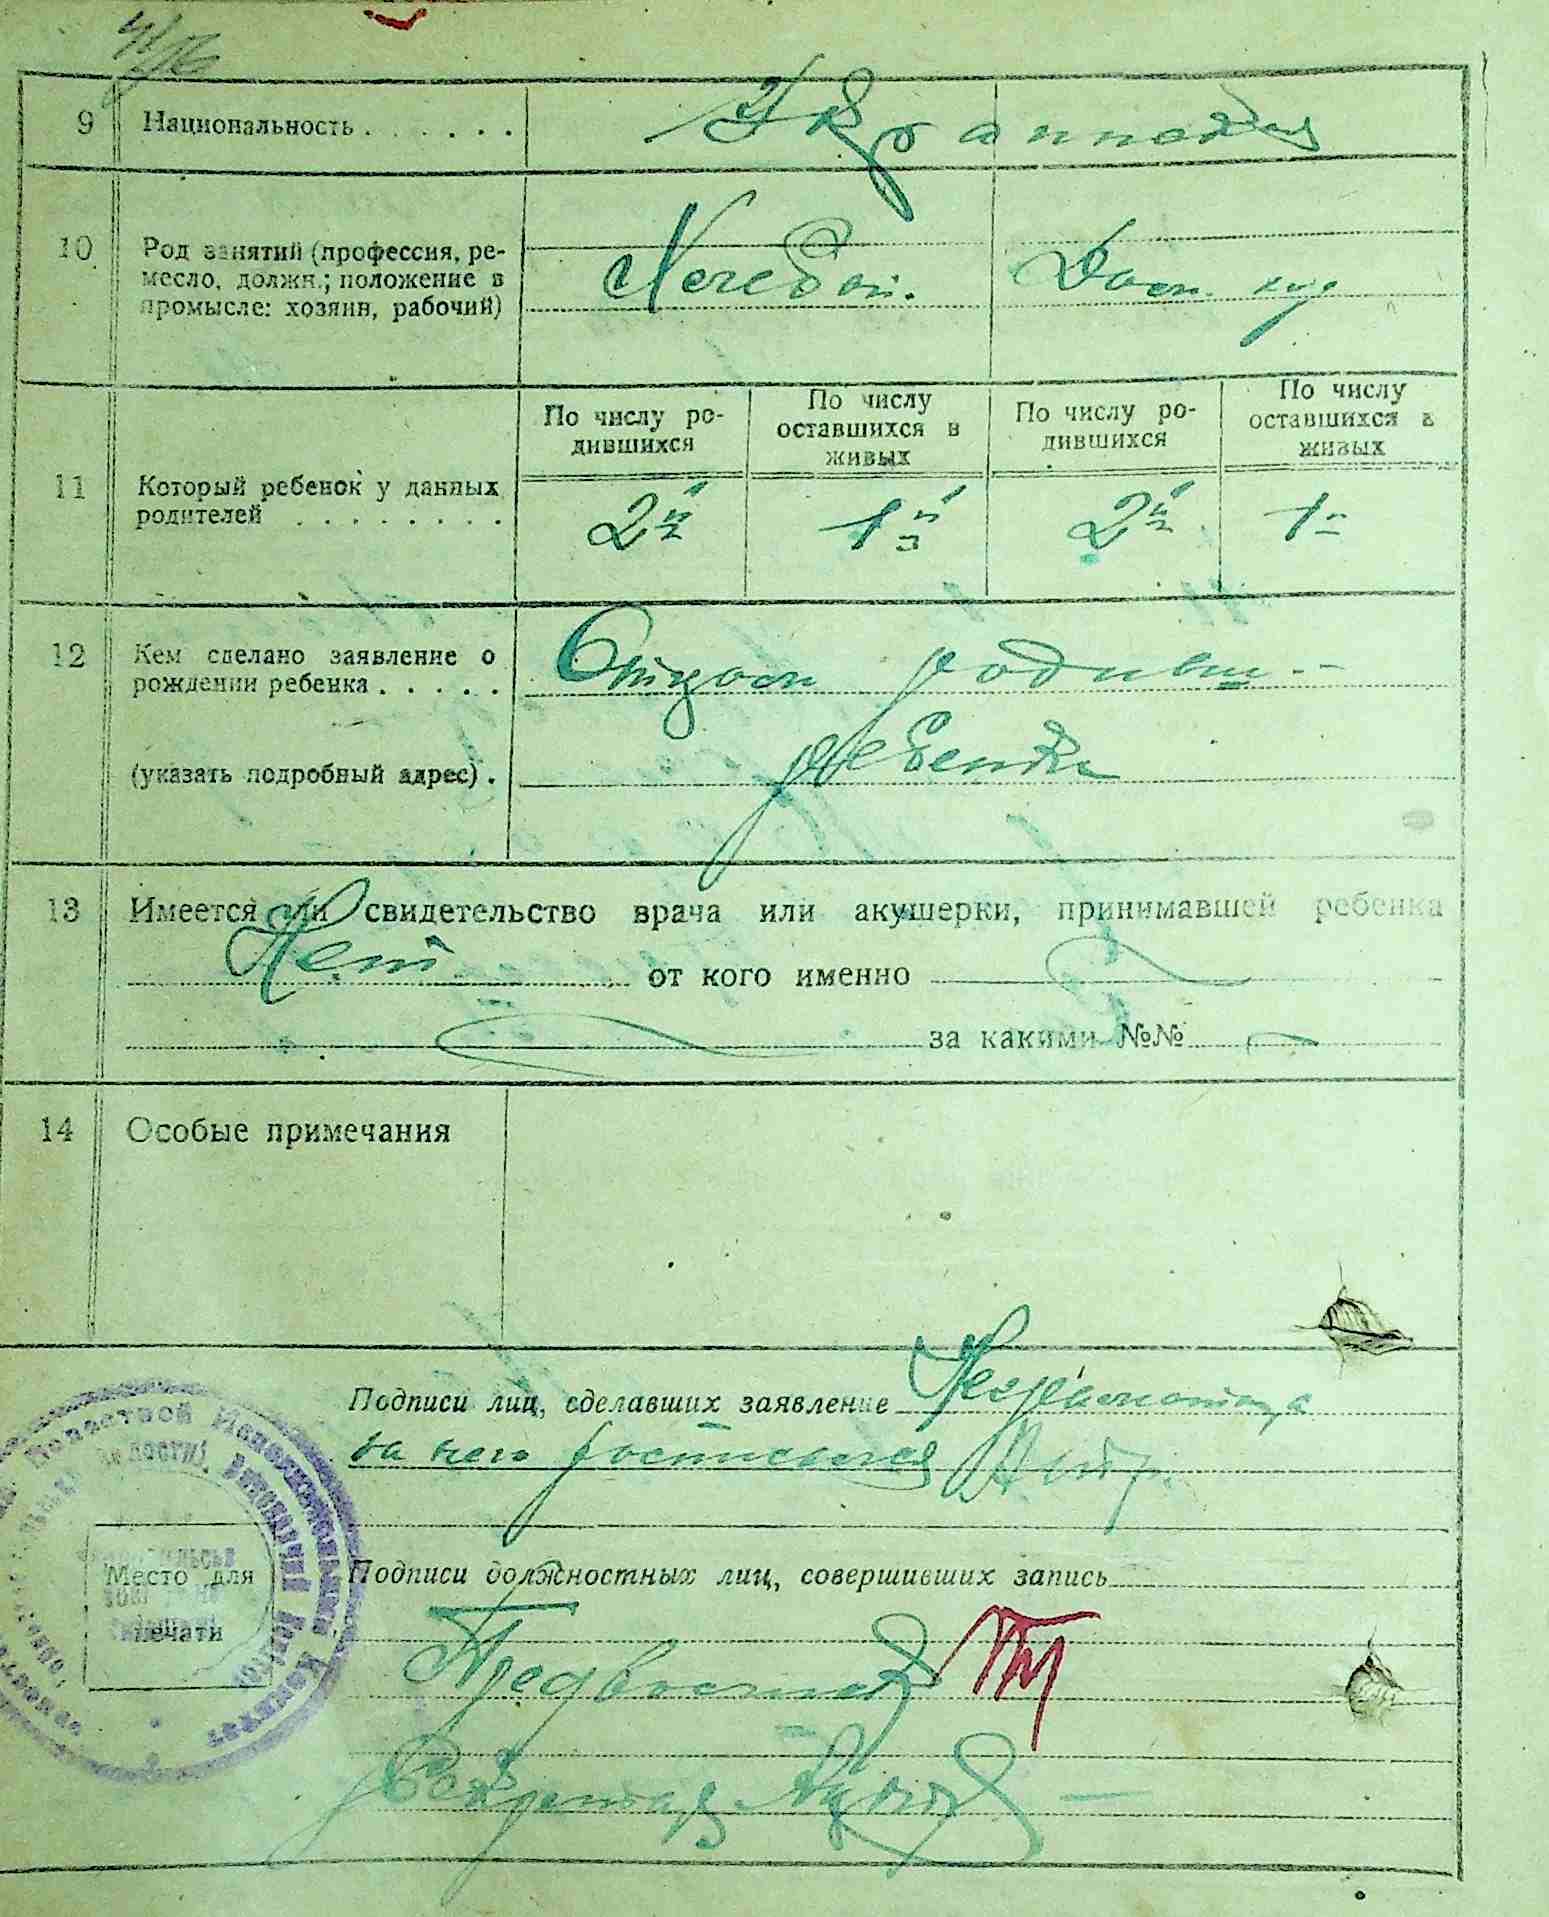 9 Национальность . . . . . . .
10 Род занятий (профессия, ре-
месло, должн.; положение в
промысле: хозяин, рабочий)
Хлебоп. Дом. хоз
11 Который ребенок у данных
родителей . . . . . . . .
По числу ро-
дившихся
По числу
оставшихся в
живых
По числу ро-
дившихся
По числу
оставшихся в
живых
2й 1й 2й 1й
12 Кем сделано заявление о
рождении ребенка . . . . .
(указать подробный адрес) .
Отцом родивш-
ребенка
13 Имеется ли свидетельство врача или акушерки, принимавшей ребенка
Нет от кого именно
за какими №№
14 Особые примечания
Подписи лиц, сделавших заявление Неграмотн, а
за него росписался
Место для
печати
Подписи должностных лиц, совершивших запись
Секретарь